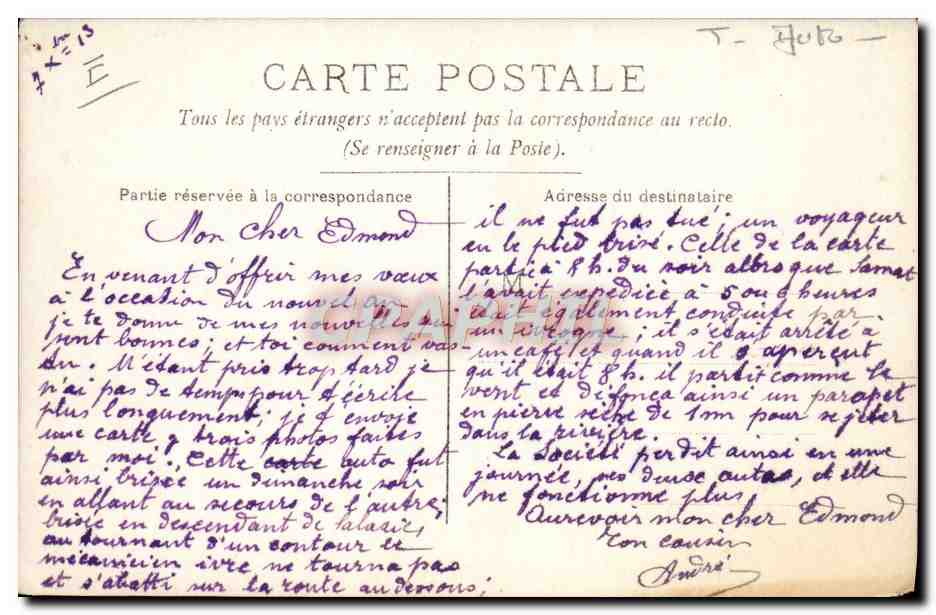 CARTE POSTALE
Tous les pays étrangers n'acceptent pas la correspondance au recto.
(Se renseigner à la Poste).
Partie réservée à la correspondance
Mon cher Edmond
En venant d'offrir mes vœux
à l'occasion du nouvel an
je te donne de mes nouvelles qui
sont bonnes; et toi comment vas-
tu. M'étant pris trop tard je
n'ai pas de temps pour t'écrire
plus longuement; je t'envoie
une carte, trois photos faites
par moi. Cette carte auto fut
ainsi brisée un dimanche soir
en allant au secours de l'autre,
brisée en descendant de Salazie,
au tournant d'un contour le
mécanicien ivre ne tourna pas
et s'abatti sur la route au dessous;
Adresse du destinataire
il ne fut pas tué; un voyageur
eu le pied brisé. Celle de la carte
partie à 8 h. du soir alors que
l'avait expédiée à 5 ou 4 heures
était également conduite par
un ivrogne; il s'était arrêté à
un café et quand il s'aperçut
qu'il était 8 h. il partit comme le
vent et défonça ainsi un parapet
en pierre sèche de 1 m pour se jeter
dans la rivière.
La Société perdit ainsi en une
journée, ses deux autos, et elle
ne fonctionne plus
Aurevoir mon cher Edmond
Ton cousin
André